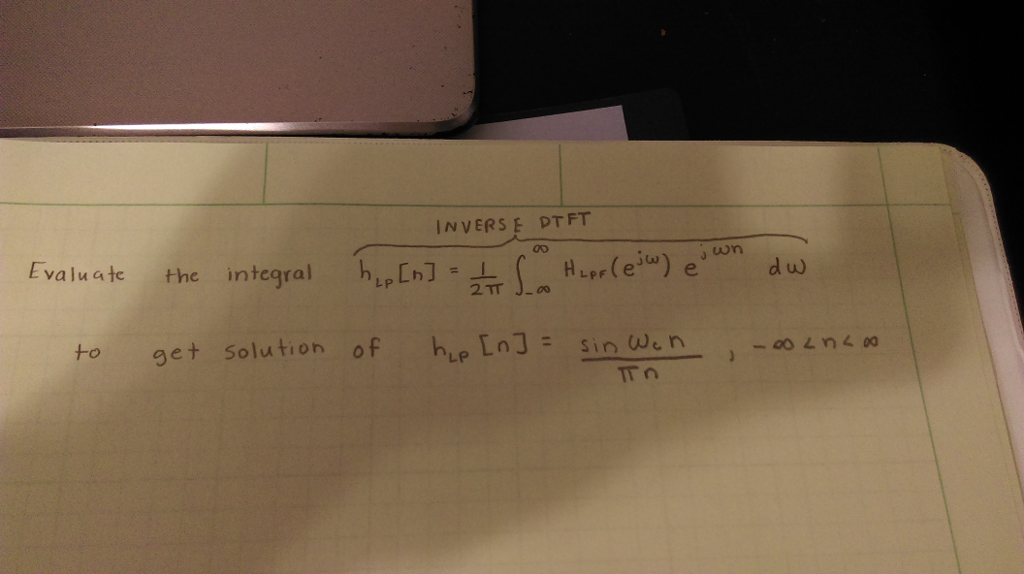 INVERSE DTFT
Evaluate the integral h_LP[n] = 1/2π ∫_-∞^∞ H_LPF(e^jω) e^jωn dω
to get solution of h_LP[n] = sin ω_c n / πn , -∞ < n < ∞